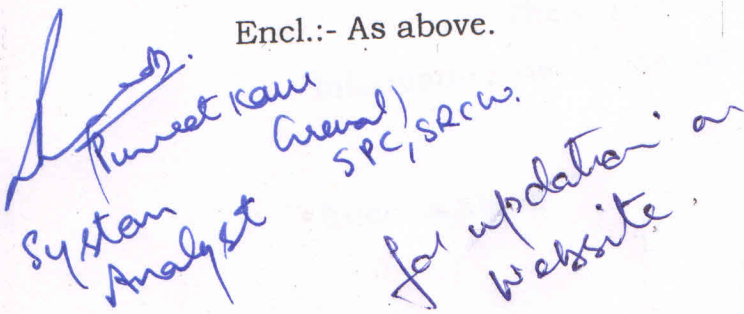 Encl.:- As above.
Puneet Kaur
Grewal)
SPC, SRCW.
System
Analyst
for updation on
website.